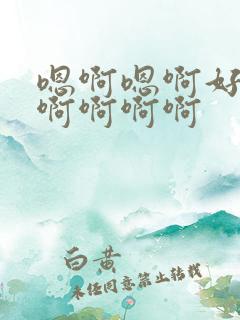 嗯啊嗯啊好
啊啊啊啊
白黄
未经同意禁止转载